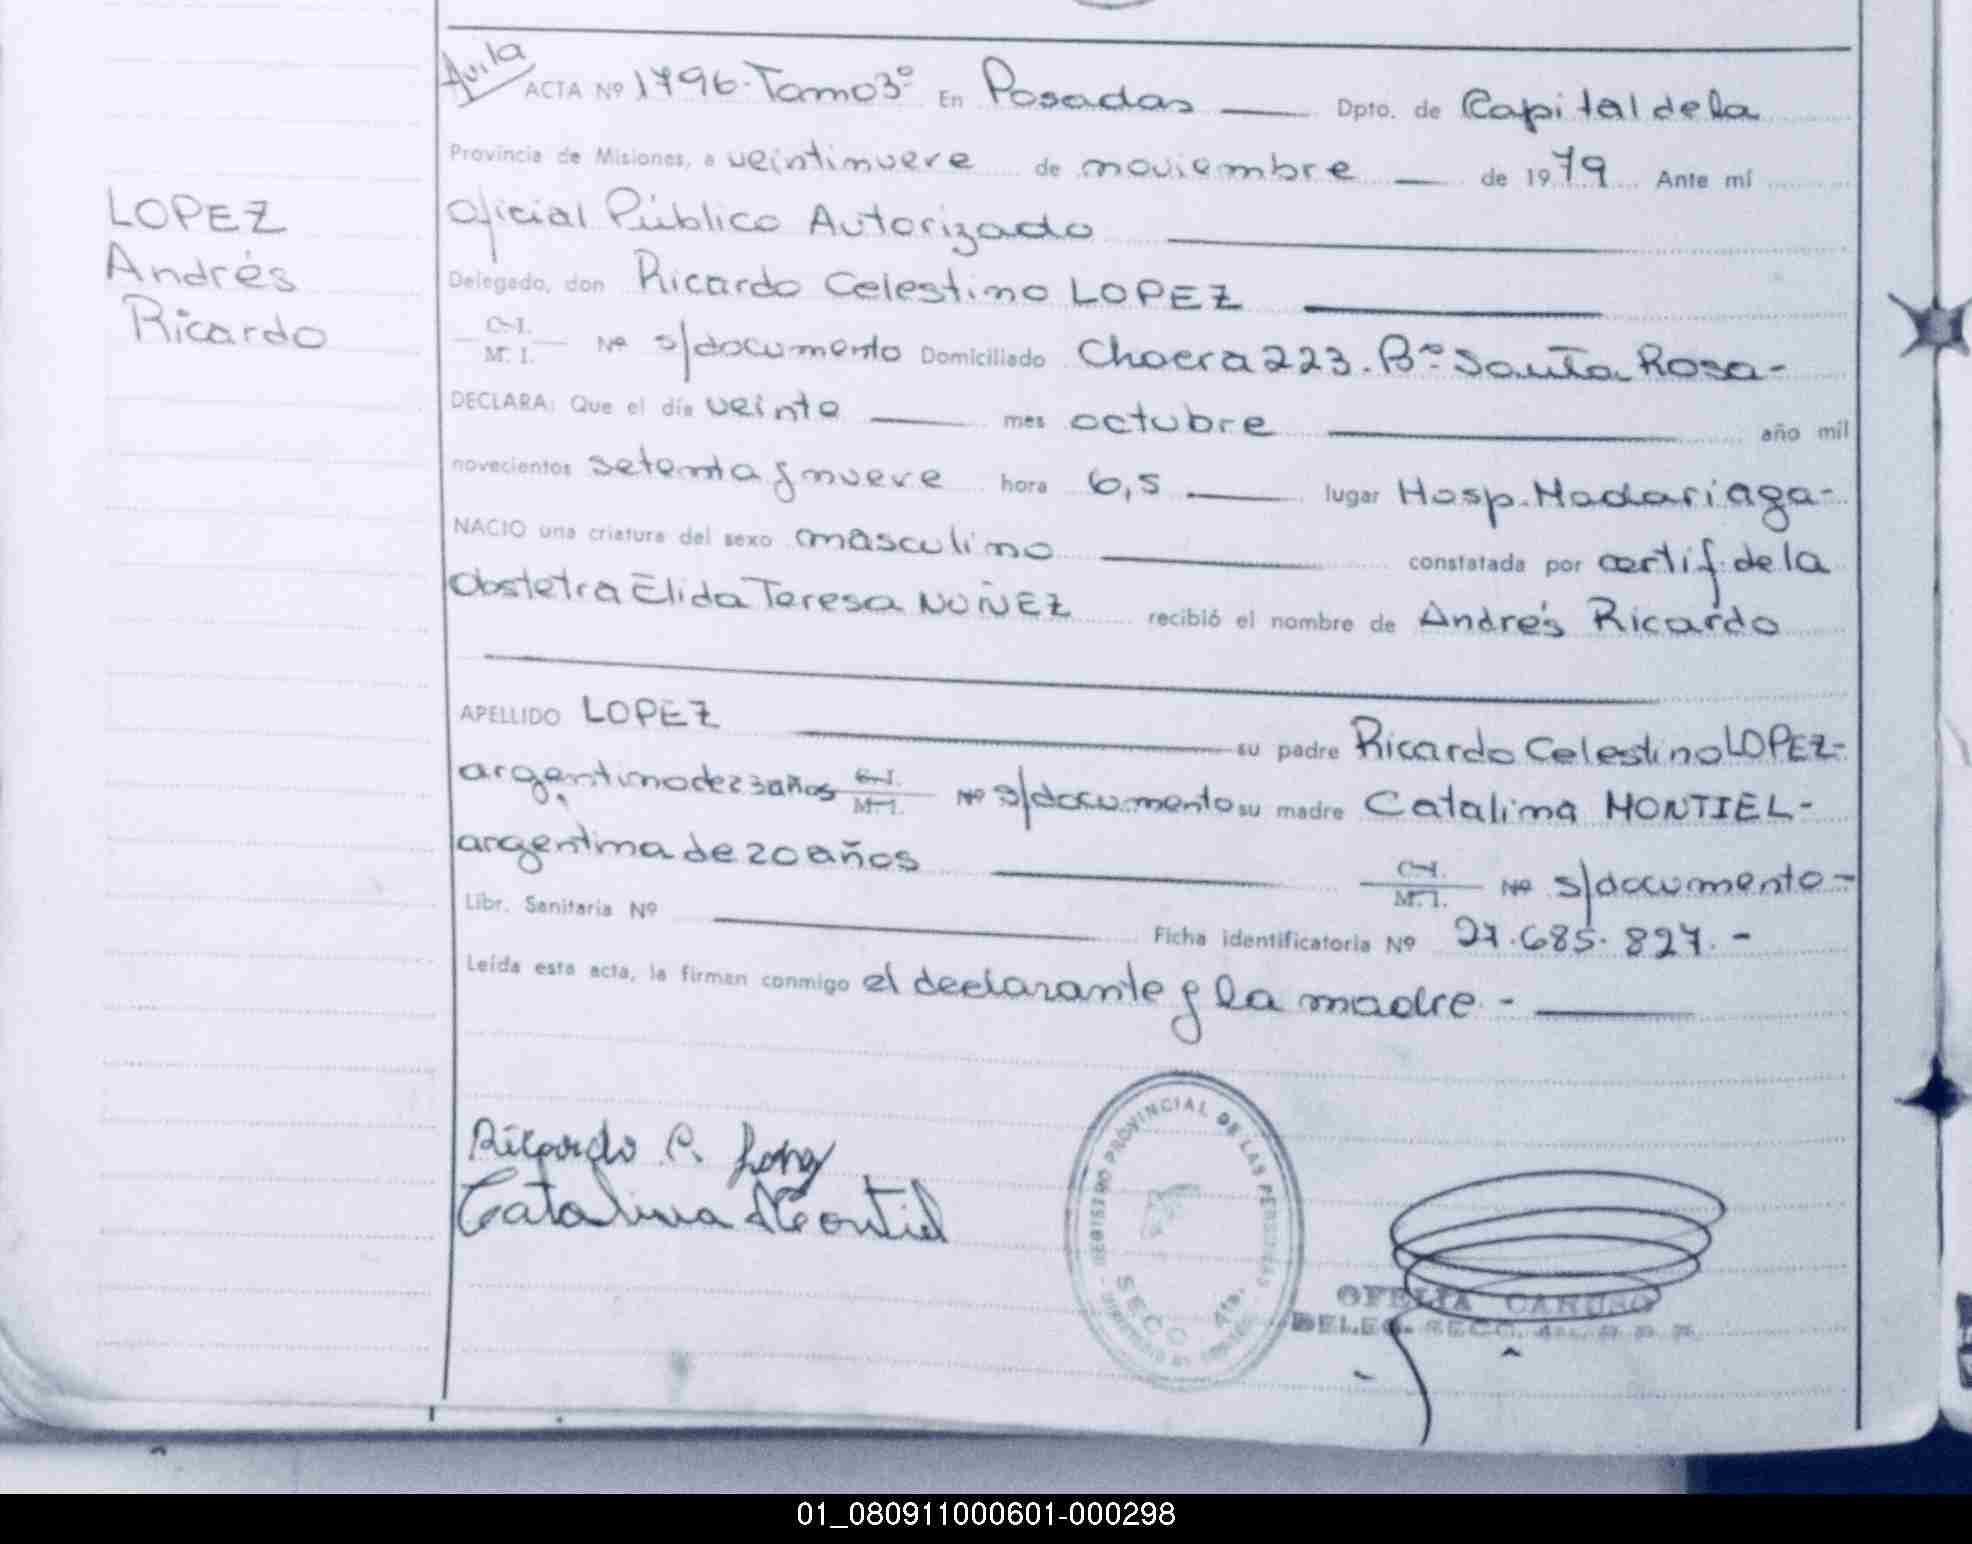 Avila
ACTA Nº 1796. Tomo 3º En Posadas Dpto. de Capital de la
Provincia de Misiones, a veintinueve de noviembre de 1979 Ante mí
Oficial Público Autorizado
LOPEZ
Andrés
Ricardo
Delegado, don Ricardo Celestino LOPEZ
C.I.
M. I. Nº s/documento Domiciliado Chacra 223. Bº Santa Rosa-
DECLARA: Que el día veinte mes octubre año mil
novecientos setenta y nueve hora 6,5 lugar Hosp. Madariaga-
NACIO una criatura del sexo masculino constatada por certif. de la
obstetra Elida Teresa NUÑEZ recibió el nombre de Andrés Ricardo
APELLIDO LOPEZ su padre Ricardo Celestino LOPEZ-
argentino de 23 años C.I. M.I. Nº s/documento su madre Catalina MONTIEL-
argentina de 20 años C.I. M.I. Nº s/documento-
Libr. Sanitaria Nº Ficha identificatoria Nº 27.685.827.-
Leída esta acta, la firman conmigo el declarante y la madre.-
Ricardo C. Lopez
Catalina Montiel
REGISTRO PROVINCIAL DE LAS PERSONAS
SECC 4ta.
OFELIA CARUSO
DELEG. SECC. 4ta. R. P. P.
01_080911000601-000298